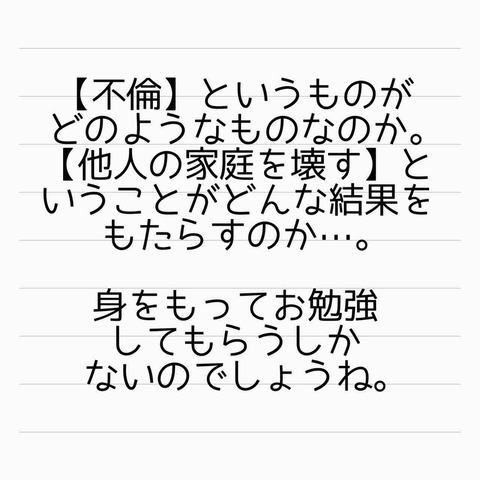 【不倫】というものが
どのようなものなのか。
【他人の家庭を壊す】と
いうことがどんな結果を
もたらすのか…。
身をもってお勉強
してもらうしか
ないのでしょうね。